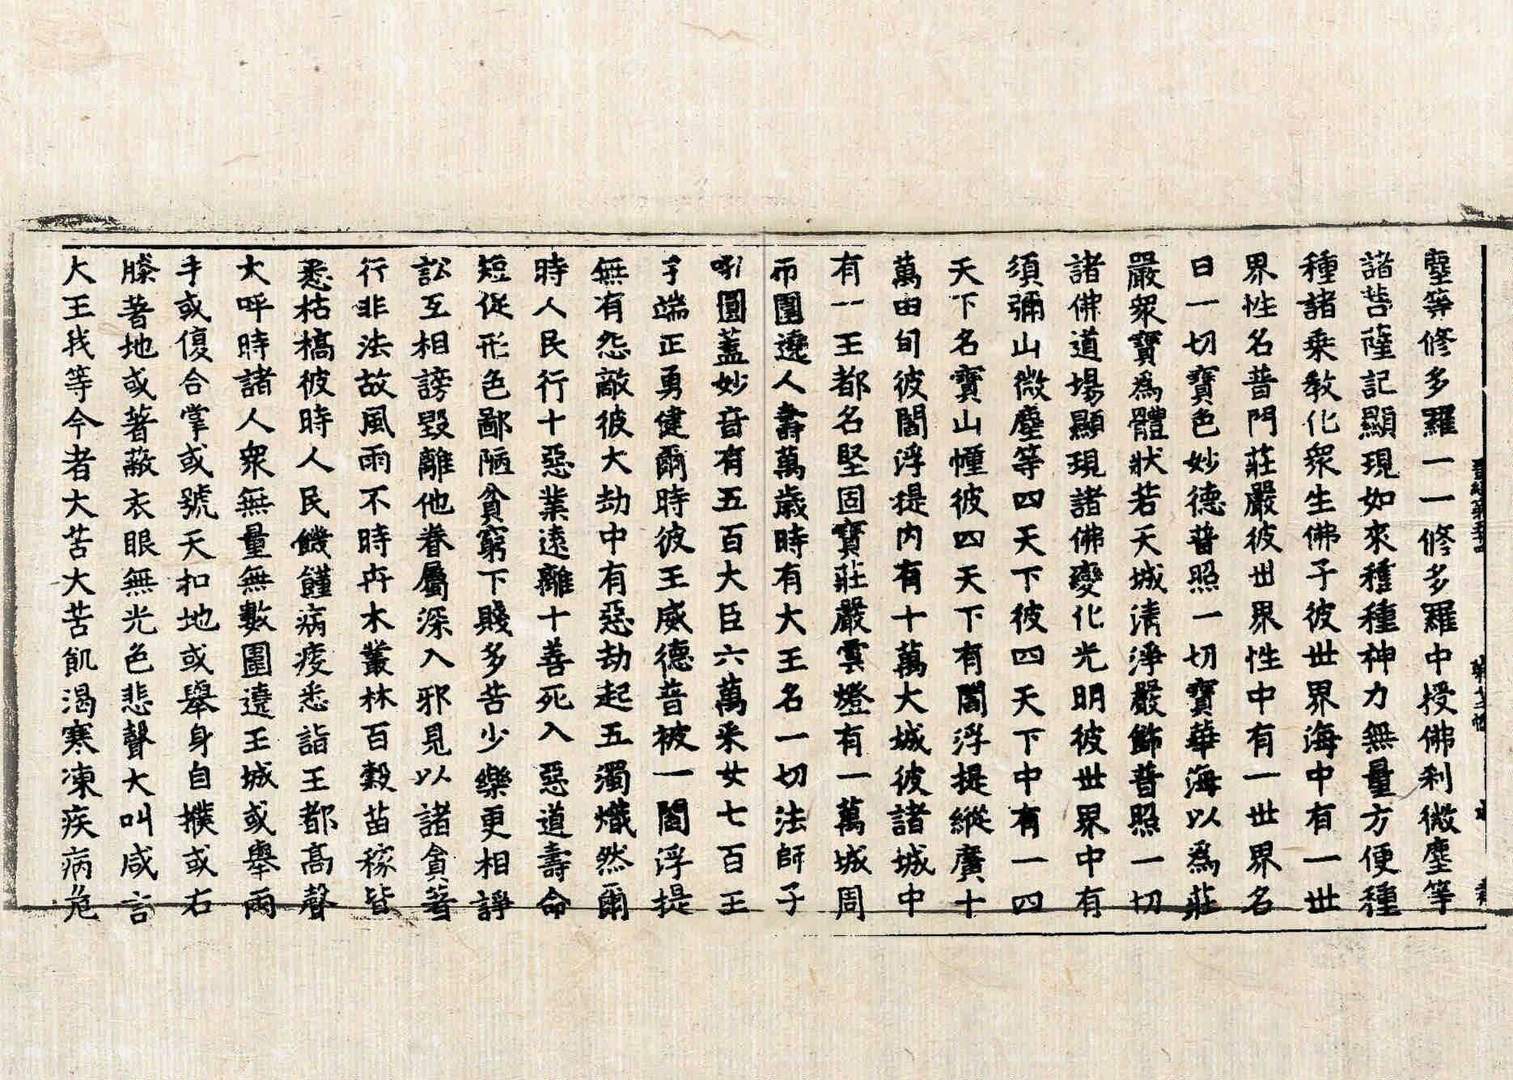 塵等修多羅一一修多羅中授佛刹微塵等
諸菩薩記顯現如來種種神力無量方便種
種諸乘教化衆生佛子彼世界海中有一世
界性名普門莊嚴彼世界性中有一世界名
曰一切寶色妙德普照一切寶華海以爲莊
嚴衆寶爲體狀若天城清淨嚴飾普照一切
諸佛道場顯現諸佛變化光明彼世界中有
須彌山微塵等四天下彼四天下中有一四
天下名寶山幢彼四天下有閻浮提縱廣十
萬由旬彼閻浮提內有十萬大城彼諸城中
有一王都名堅固寶莊嚴雲燈有一萬城周
帀圍遶人壽萬歲時有大王名一切法師子
吼圓蓋妙音有五百大臣六萬采女七百王
子端正勇健爾時彼王威德音被一閻浮提
無有怨敵彼大劫中有惡劫起五濁熾然爾
時人民行十惡業遠離十善死入惡道壽命
短促形色鄙陋貧窮下賤多苦少樂更相諍
訟互相謗毀離他眷屬深入邪見以諸貪著
行非法故風雨不時卉木叢林百穀苗稼皆
悉枯槁彼時人民饑饉病疫悉詣王都高聲
大呼時諸人衆無量無數圍遶王城或舉兩
手或復合掌或號天扣地或舉身自撲或右
膝著地或著蔽衣眼無光色悲聲大叫咸言
大王我等今者大苦大苦飢渴寒凍疾病危